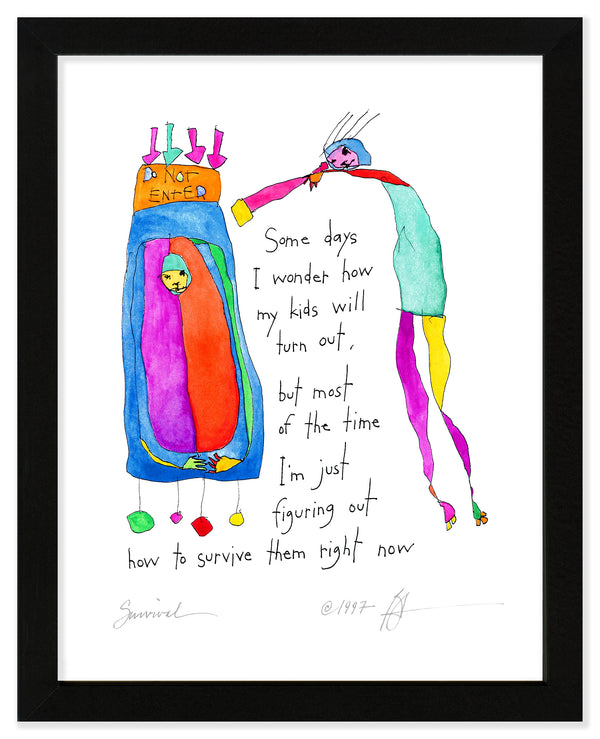 Do NOT
ENtER
Some days
I wonder how
my kids will
turn out,
but most
of the time
I'm just
figuring out
how to survive them right now
Survival
©1997